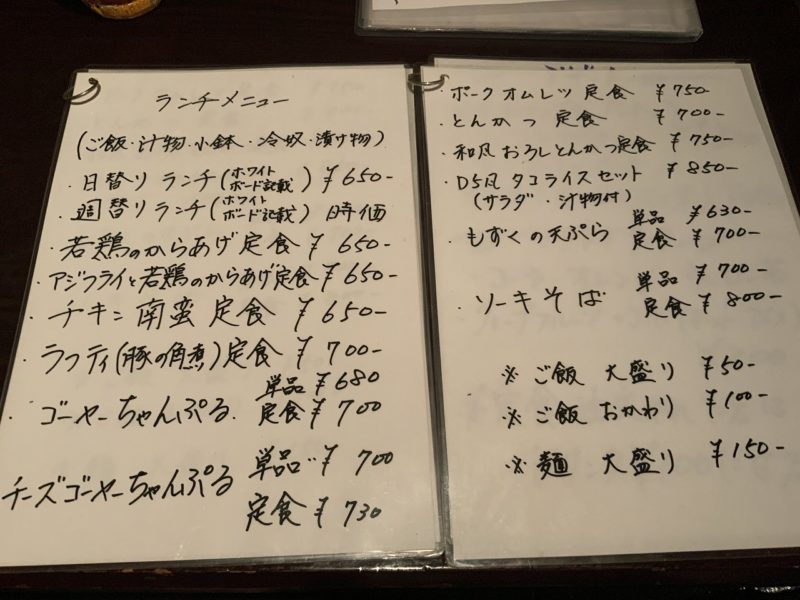 ランチメニュー
(ご飯・汁物・小鉢・冷奴・漬け物)
・日替り ランチ(ホワイトボード記載) ¥650-
・週替り ランチ(ホワイトボード記載) 時価
・若鶏のからあげ定食 ¥650-
・アジフライと若鶏のからあげ定食 ¥650-
・チキン南蛮 定食 ¥650-
・ラフティ(豚の角煮)定食 ¥700-
・ゴーヤーちゃんぷる 単品 ¥680
定食 ¥700
チーズゴーヤーちゃんぷる 単品 ¥700
定食 ¥730
・ポーク オムレツ 定食 ¥750-
・とんかつ 定食 ¥700-
・和風おろしとんかつ定食 ¥750-
・D5風 タコライスセット ¥850-
(サラダ・汁物付)
・もずくの天ぷら 単品 ¥630-
定食 ¥700-
・ソーキそば 単品 ¥700-
定食 ¥800-
※ ご飯 大盛り ¥50-
※ ご飯 おかわり ¥100-
※ 麺 大盛り ¥150-